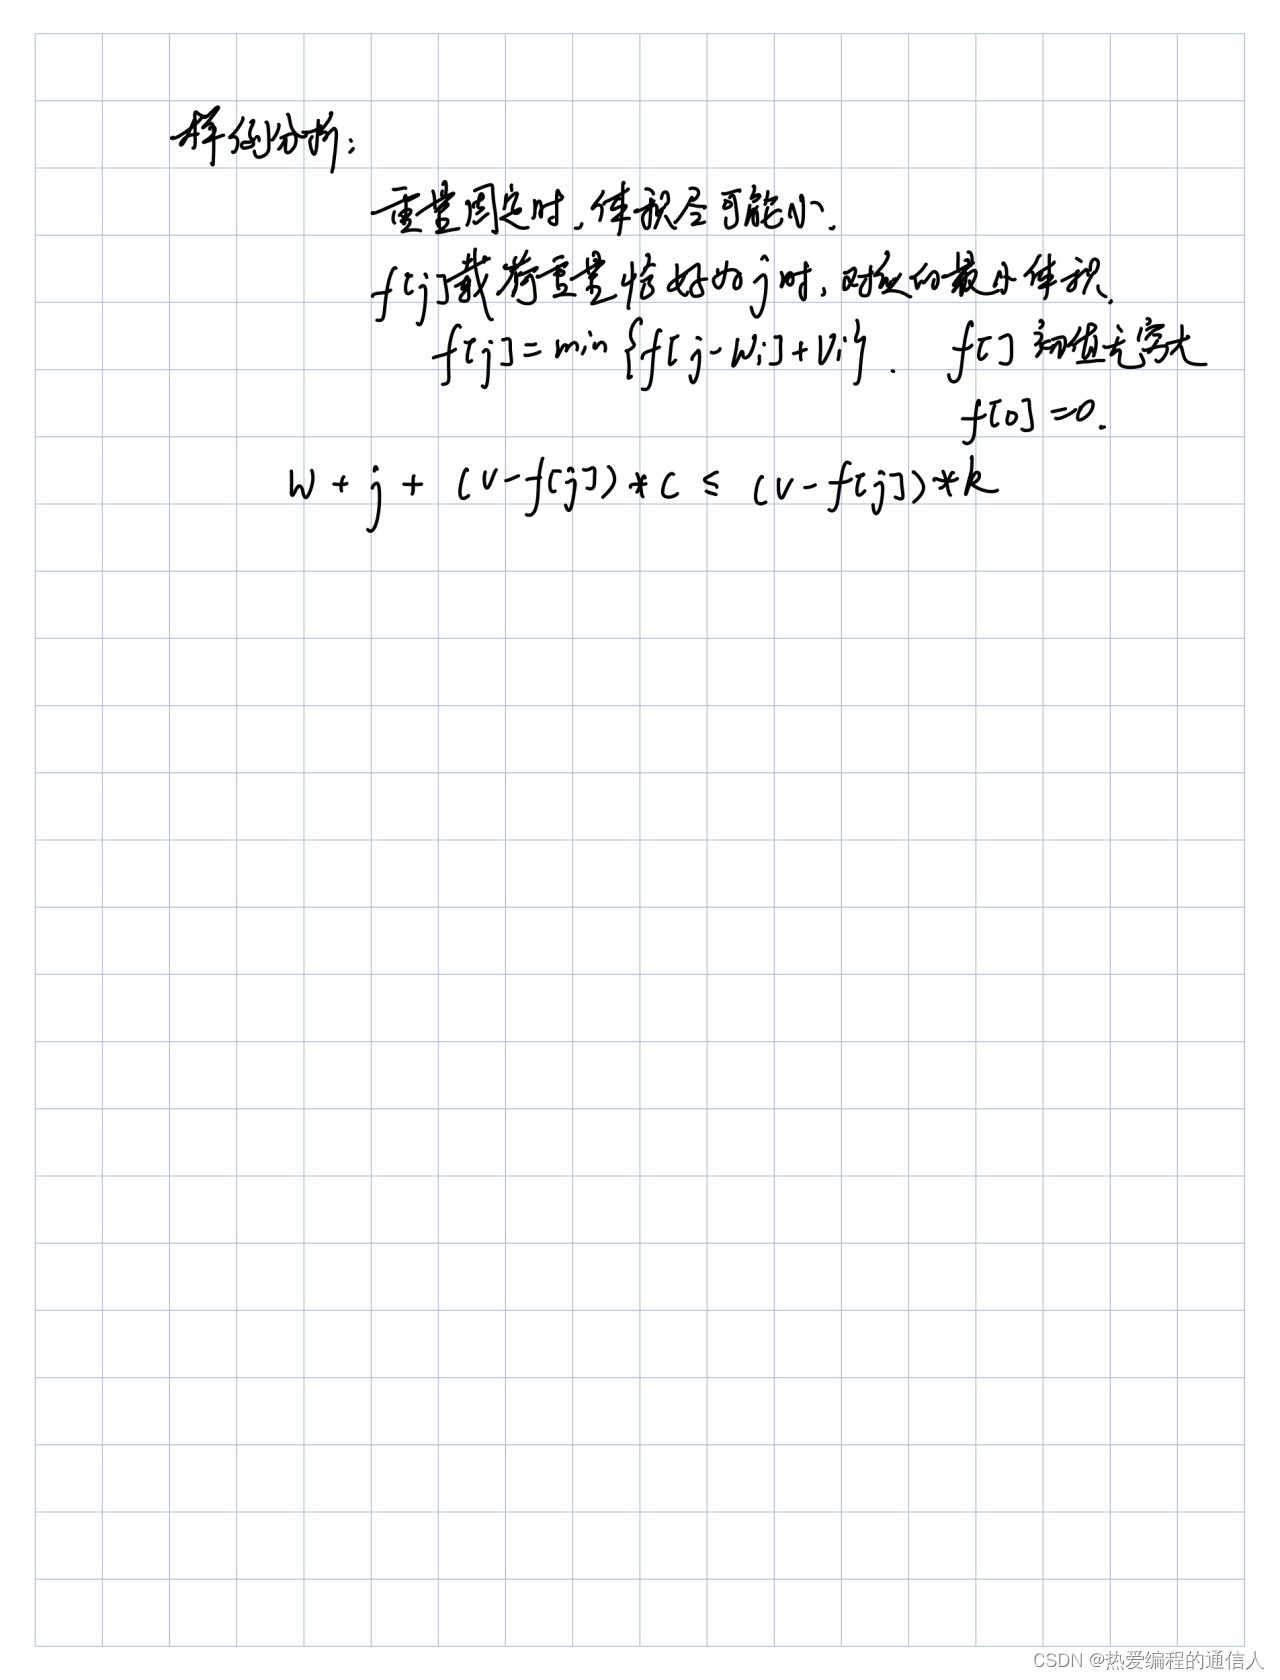 样例分析:
重量固定时,体积尽可能小.
f[j]载荷重量恰好为j时,对应的最小体积.
f[j]=min{f[j-Wi]+Vi}. f[]初值无穷大
f[0]=0.
W+j+(V-f[j])*C≤(V-f[j])*k
CSDN @热爱编程的通信人